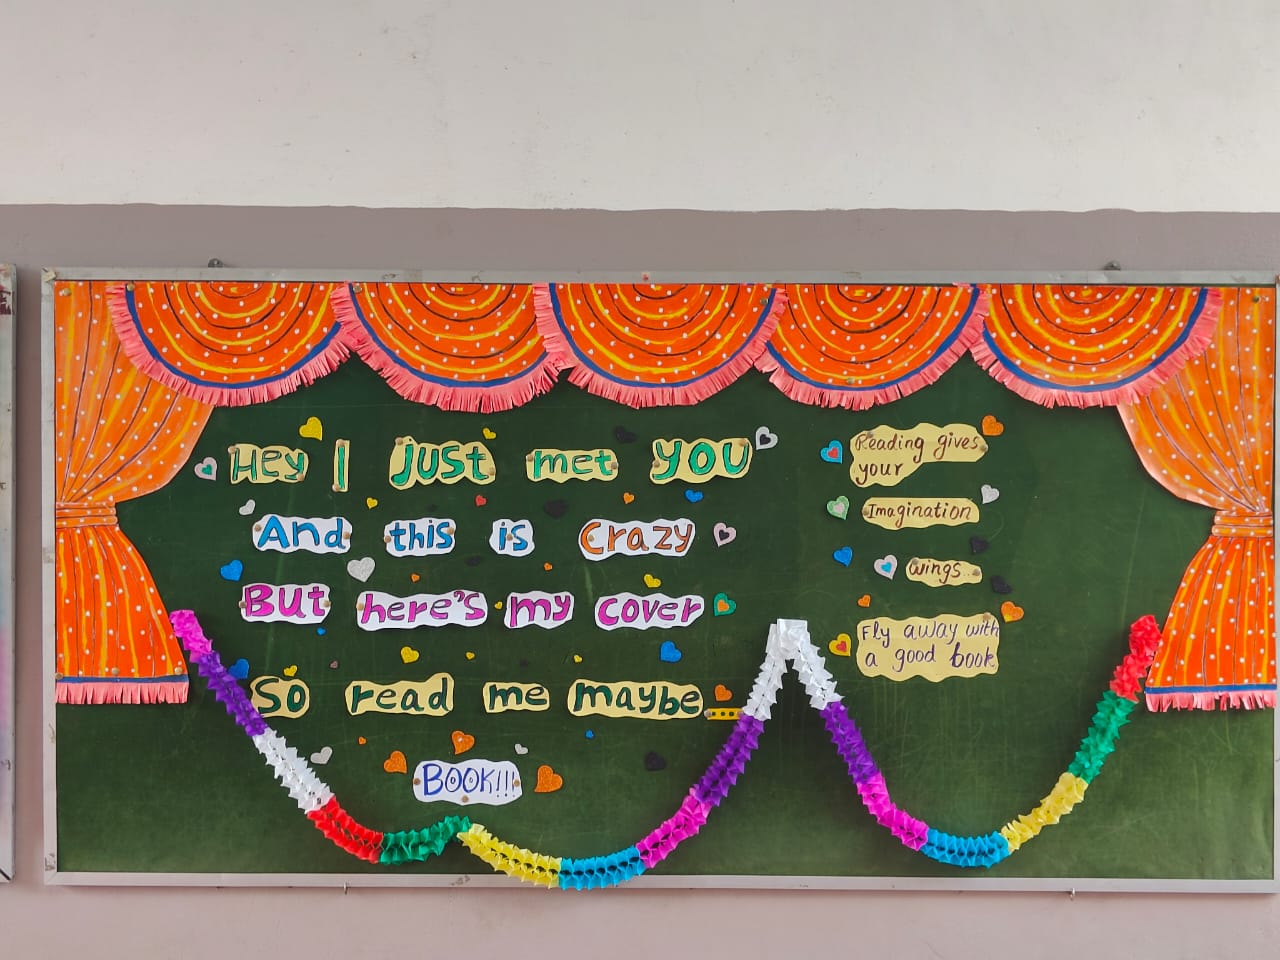 Hey I just met you
And this is Crazy
But here's my cover
So read me maybe...
BOOK!!!
Reading gives
your
Imagination
wings...
Fly away with
a good book